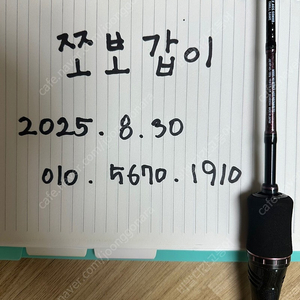 쪼뽀갑이
2025. 8. 30
010. 5670. 1910